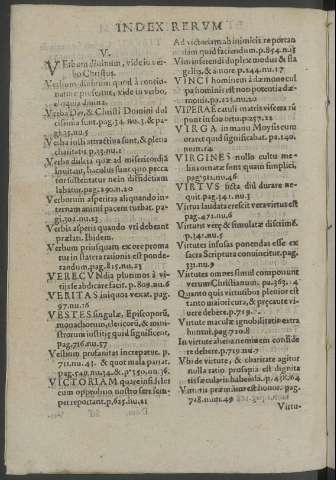 INDEX RERVM
V.
Verbum diuinum, vide in verbo Christus.
Verbum diuinum quod à concionatore
diuina.
Verba Dei, & Christi Domini dulcissima sunt. pag. 34. nu. 3. & pag. 35. nu. 5
Verba iusti attractiua sunt, & plena charitatis p. 53. nu. 1
Verba dulcia quæ ad misericordiã inuitant, baculus sunt quo peccator sustentatur
labatur. pag. 190. n. 20
Verborum asperitas aliquando internam animi pacem turbat. pag. 301. nu. 13
Verbis asperis quando vti debeant prælati. Ibidem.
Verbum priusquam ex ore promatur in statera rationis est ponderandum. pag. 815. nu. 23
VERECVNdia plurimos à vitijs
facit. p. 809. nu. 6
VERITAS iniquos vexat. pag. 97. nu. 16
VESTES singulæ, Episcoporũ, monachorum, clericorũ, & ministrorum iustitiæ quid significent. pag. 716. nu. 57
Vestium profanitas increpatur. p. 711. nu. 43. & quot mala pariat. pag. 549. nu. 34. & p. 550. nu. 36.
VICTORIAM quare infideles cum opprobrio nostro sæpe semper reportant. p. 625. nu. 21
Ad victoriam ab inimicis reportandam quid faciendum. p. 854. n. 15
Vim inferendi duplex modus & flagellis, & amore. p. 144. nu. 17
VINCI hominem à dæmone culpa hominis est non potentia dæmonis. p. 123. nu. 20
VIPERAE catuli matris viscera rũpunt in suo ortu. p. 257. 12
VIRGA in manu Moysis cum oraret quid significabat. pa. 140. num. 14
VIRGINES nullo cultu
ornatæ sunt quam simplici. pag. 911. nu. 46
VIRTVS ficta diũ durare nequit. pag. 341. nu. 5
Virtus laudata crescit vera virtus est pag. 471. nu. 6
Virtutes veræ & simulatæ discrimẽ. p. 341. nu. 5
Virtutes infusas ponendas esse ex sacra Scriptura conuincitur. pag. 331. nu. 9
Virtutes omnes simul componunt verum Christianum. pa. 363. 14
Quanto quis virtutibus plenior est tanto maiori cura, & præcaute viuere debere. p. 719.
Virtute maculæ ignobilitatis extrahuntur. pag. 719. 8
In virtute aliena neminem considere debere. p. 719. nu. 7
Vbi de virtute, & charitate agitur nulla ratio prosapiæ est dignitatis sæcularis habenda. p. 436. 64
Virtutis præmium est honor. pag. 748. num. 49
Virtu-